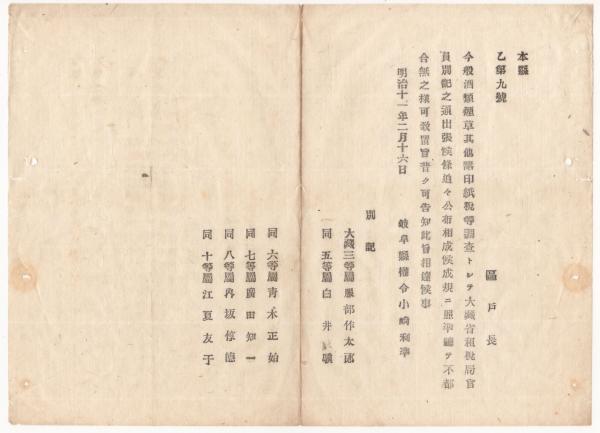 本縣
乙第九號
區戸長
今般酒類煙草其他諸印紙税等調査トシテ大藏省租税局官
員別記之通出張候條追々公布相成候成規ニ照準總テ不都
合無之樣可致置旨普ク可告知此旨相達候事
明治十一年二月十六日
岐阜縣權令小崎利準
別記
大藏三等屬服部作太郎
同 五等屬白井
同 六等屬青木正始
同 七等屬廣田知一
同 八等屬坂惇德
同 十等屬江夏友于